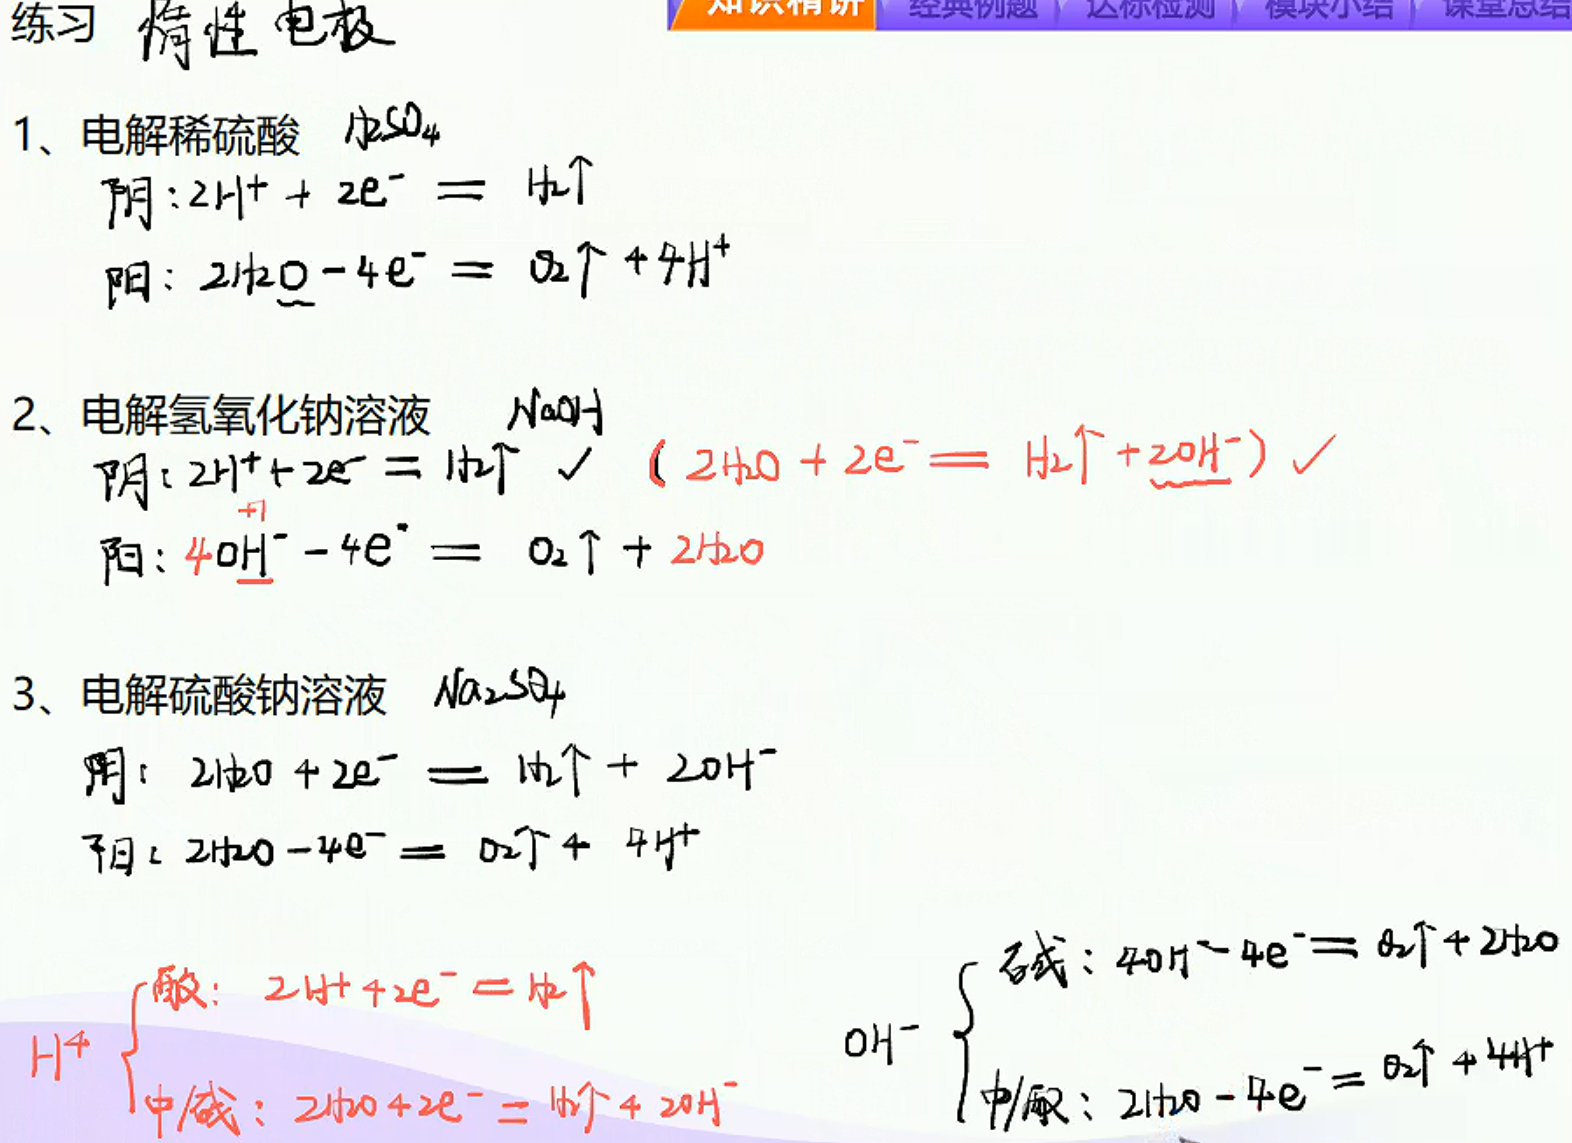 练习 惰性电极
知识精讲 经典例题 达标检测 模块小结 课堂总结
1、电解稀硫酸 H2SO4
阴:2H⁺ + 2e⁻ = H2↑
阳: 2H2O - 4e⁻ = O2↑ + 4H⁺
2、电解氢氧化钠溶液 NaOH
阴: 2H⁺ + 2e⁻ = H2↑ ✓ ( 2H2O + 2e⁻ = H2↑ + 2OH⁻ ) ✓
+1
阳: 4OH⁻ - 4e⁻ = O2↑ + 2H2O
3、电解硫酸钠溶液 Na2SO4
阴: 2H2O + 2e⁻ = H2↑ + 2OH⁻
阳: 2H2O - 4e⁻ = O2↑ + 4H⁺
H⁺
酸: 2H⁺ + 2e⁻ = H2↑
中/碱: 2H2O + 2e⁻ = H2↑ + 2OH⁻
OH⁻
碱: 4OH⁻ - 4e⁻ = O2↑ + 2H2O
中/酸: 2H2O - 4e⁻ = O2↑ + 4H⁺